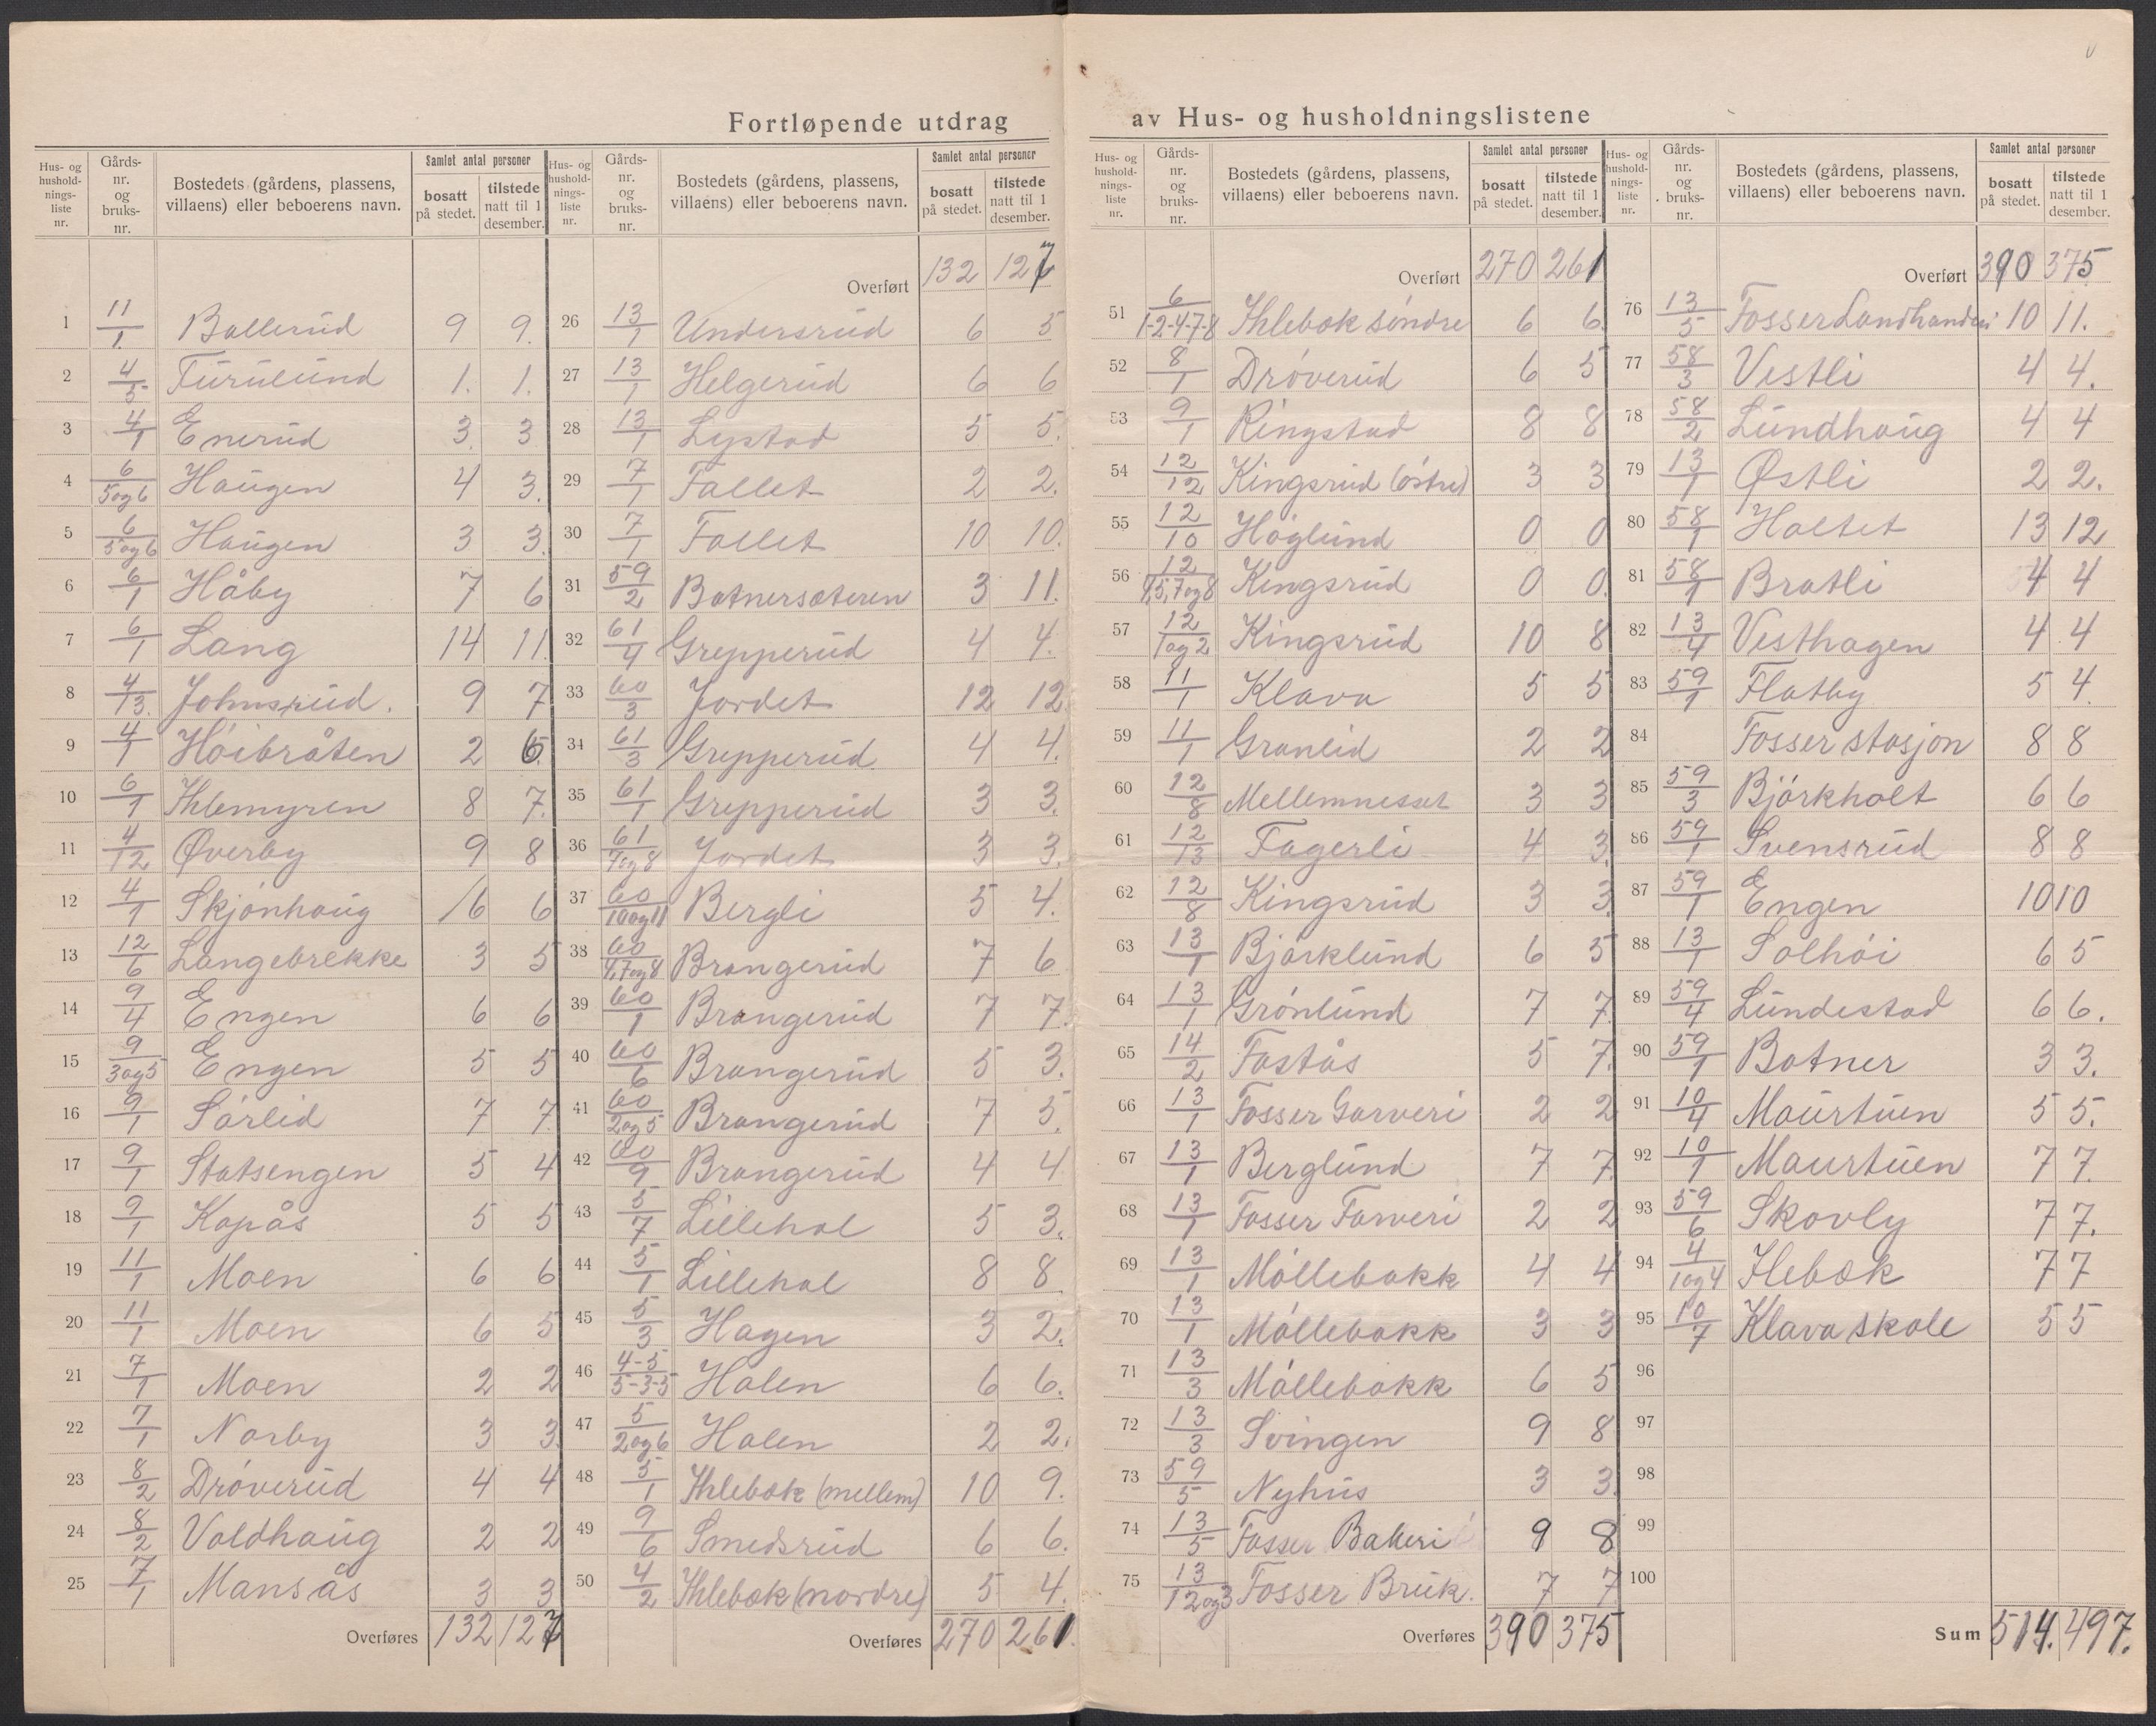 Fortløpende utdrag av Hus- og husholdningslistene
Hus- og husholdningsliste nr. | Gårds- nr. og bruks- nr. | Bostedets (gårdens, plassens, villaens) eller beboerens navn. | Samlet antal personer bosatt på stedet. | tilstede natt til 1 desember.
1 11/1 Ballerud 9 9.
2 4/5 Furulund 1. 1.
3 4/1 Enerud 3 3
4 6/5og6 Haugen 4 3.
5 6/5og6 Haugen 3 3.
6 6/1 Håby 7 6
7 6/1 Lang 14 11.
8 4/13. Johnsrud. 9 7
9 4/1 Höibråten 2 6
10 6/1 Ihlemyren 8 7.
11 4/12 Øverby 9 8
12 4/1 Skjönhaug 6 6
13 12/6 Langebrekke 3 5
14 9/4 Engen 6 6
15 9/3og5 Engen 5 5
16 9/1 Sörlid 7 7
17 9/1 Statsengen 5 4
18 9/1 Kapås 5 5
19 11/1 Moen 6 6
20 11/1 Moen 6 5
21 7/1 Moen 2 2
22 7/1 Norby 3 3.
23 8/2 Dröverud 4 4
24 8/2 Voldhaug 2 2
25 7/1 Mansås 3 3
Overføres 132 127
Hus- og husholdningsliste nr. | Gårds- nr. og bruks- nr. | Bostedets (gårdens, plassens, villaens) eller beboerens navn. | Samlet antal personer bosatt på stedet. | tilstede natt til 1 desember.
Overført 132 127
26 13/1 Undersrud 6 5
27 13/1 Helgerud 6 6
28 13/1 Lystad 5 5.
29 7/1 Fallet 2 2.
30 7/1 Fallet 10 10.
31 59/2 Botnersæteren 3 11.
32 61/4 Grepperud 4 4.
33 60/3 Jordet 12 12
34 61/3 Grepperud 4 4.
35 61/1 Grepperud 3 3.
36 61/7og8 Jordet 3 3.
37 60/10og11 Bergli 5 4.
38 60/4,7og8 Brangerud 7 6
39 60/1 Brangerud 7 7.
40 60/6 Brangerud 5 3.
41 60/2og5 Brangerud 7 5.
42 60/9 Brangerud 4 4
43 5/7 Lillehol 5 3.
44 5/1 Lillehol 8 8
45 5/3 Hagen 3 2.
46 4-5/5-3-5 Holen 6 6.
47 5/2og6 Holen 2 2.
48 5/1 Ihlebæk (mellem) 10 9.
49 9/6 Smedsrud 6 6.
50 4/2 Ihlebæk (nordre) 5 4.
Overføres 270 261.
Hus- og husholdningsliste nr. | Gårds- nr. og bruks- nr. | Bostedets (gårdens, plassens, villaens) eller beboerens navn. | Samlet antal personer bosatt på stedet. | tilstede natt til 1 desember.
Overført 270 261
51 6/1-2-4-7-8 Ihlebæk söndre 6 6.
52 8/1 Dröverud 6 5
53 9/1 Ringstad 8 8
54 12/12 Kingsrud (östre) 3 3
55 12/10 Höglund 0 0
56 12/4,5,7og8 Kingsrud 0 0.
57 12/1og2 Kingsrud 10 8
58 11/1 Klava 5 5
59 11/1 Granlid 2 2
60 12/8 Mellemnesset 3 3
61 12/13 Fagerli 4 3.
62 12/8 Kingsrud 3 3.
63 13/1 Björklund 6 5
64 13/1 Grönlund 7 7.
65 14/2 Fastås 5 7.
66 13/1 Fosser Garveri 2 2
67 13/1 Berglund 7 7.
68 13/1 Fosser Farveri 2 2
69 13/1 Möllebakk 4 4
70 13/1 Möllebakk 3 3
71 13/3 Möllebakk 6 5
72 13/3 Svingen 9 8
73 59/5 Nyhus 3 3.
74 13/5 Fosser Bakeri 9 8
75 13/12og3 Fosser Bruk. 7 7
Overføres 390 375
Hus- og husholdningsliste nr. | Gårds- nr. og bruks- nr. | Bostedets (gårdens, plassens, villaens) eller beboerens navn. | Samlet antal personer bosatt på stedet. | tilstede natt til 1 desember.
Overført 390 375
76 13/5 Fosser Landhandleri 10 11.
77 58/3 Vestli 4 4.
78 58/2 Lundhaug 4 4
79 13/1 Østli 2 2.
80 58/1 Holtet 13 12
81 58/1 Bratli 4 4
82 13/4 Vesthagen 4 4
83 59/1 Flatby 5 4.
84 Fosser stasjon 8 8
85 59/3 Björkholt 6 6
86 59/1 Svensrud 8 8
87 59/1 Engen 10 10
88 13/1 Solhöi 6 5
89 59/4 Lundestad 6 6.
90 59/1 Botner 3 3.
91 10/4 Maurtuen 5 5.
92 10/1 Maurtuen 7 7.
93 59/6 Skovly 7 7.
94 4/1og4 Ilebæk 7 7
95 10/7 Klava skole 5 5
96
97
98
99
100
Sum 514. 497.